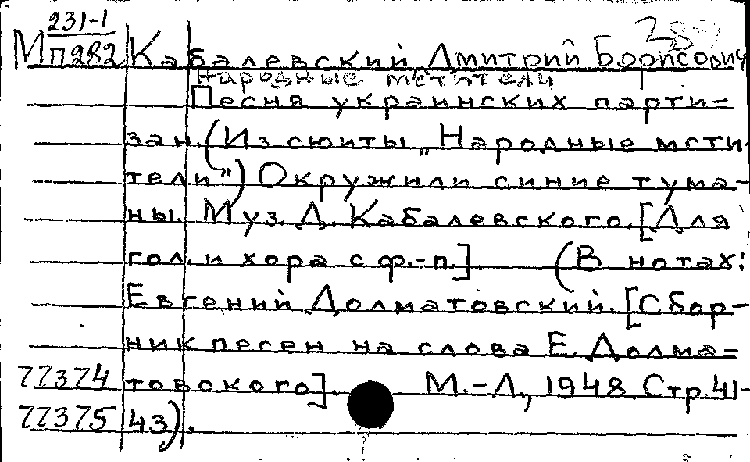 231-1
Мп282 Кабалевский, Дмитрий Борисович
Народные мстители
Песня украинских парти=
зан. (Из сюиты „Народные мсти-
тели") Окружили синие тума-
ны. Муз. Д. Кабалевского. [Для
гол. и хора с ф.-п.] (В нотах:
Евгений Долматовский. [Сбор-
ник песен на слова Е. Долма=
77374 товского]. М.-Л., 1948. Стр. 41-
77375 43).